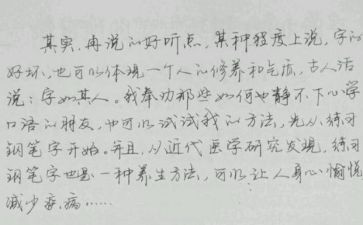 其实,再说的好听点,某种程度上说,字的
好坏,也可以体现一个人的修养和气质,古人话
说:字如其人。我奉劝那些如何也静不下心学
口语的朋友,也可以试试我的方法,先从练习
钢笔字开始。并且,从近代医学研究发现,练习
钢笔字也是一种养生方法,可以让人身心愉悦
减少疾病……